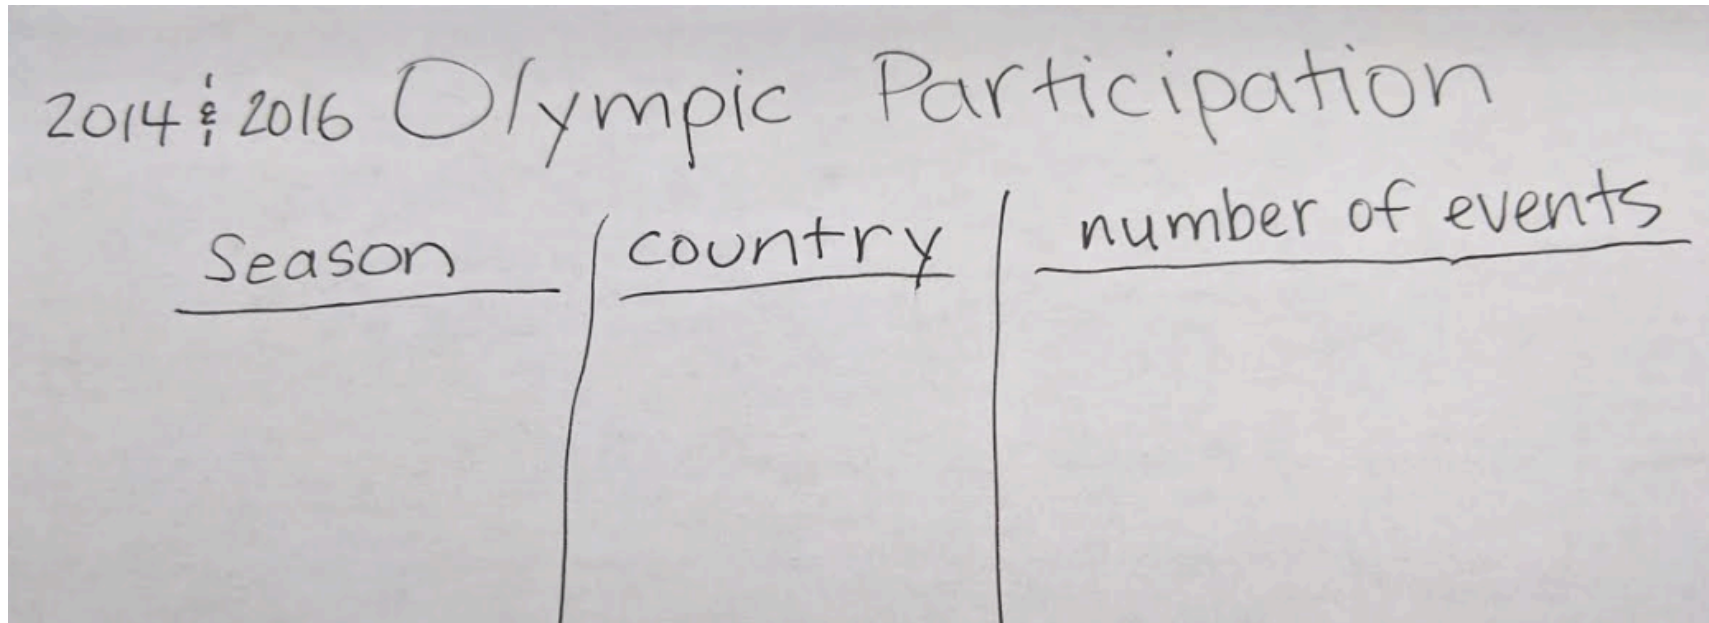 2014 & 2016 Olympic Participation
Season country number of events